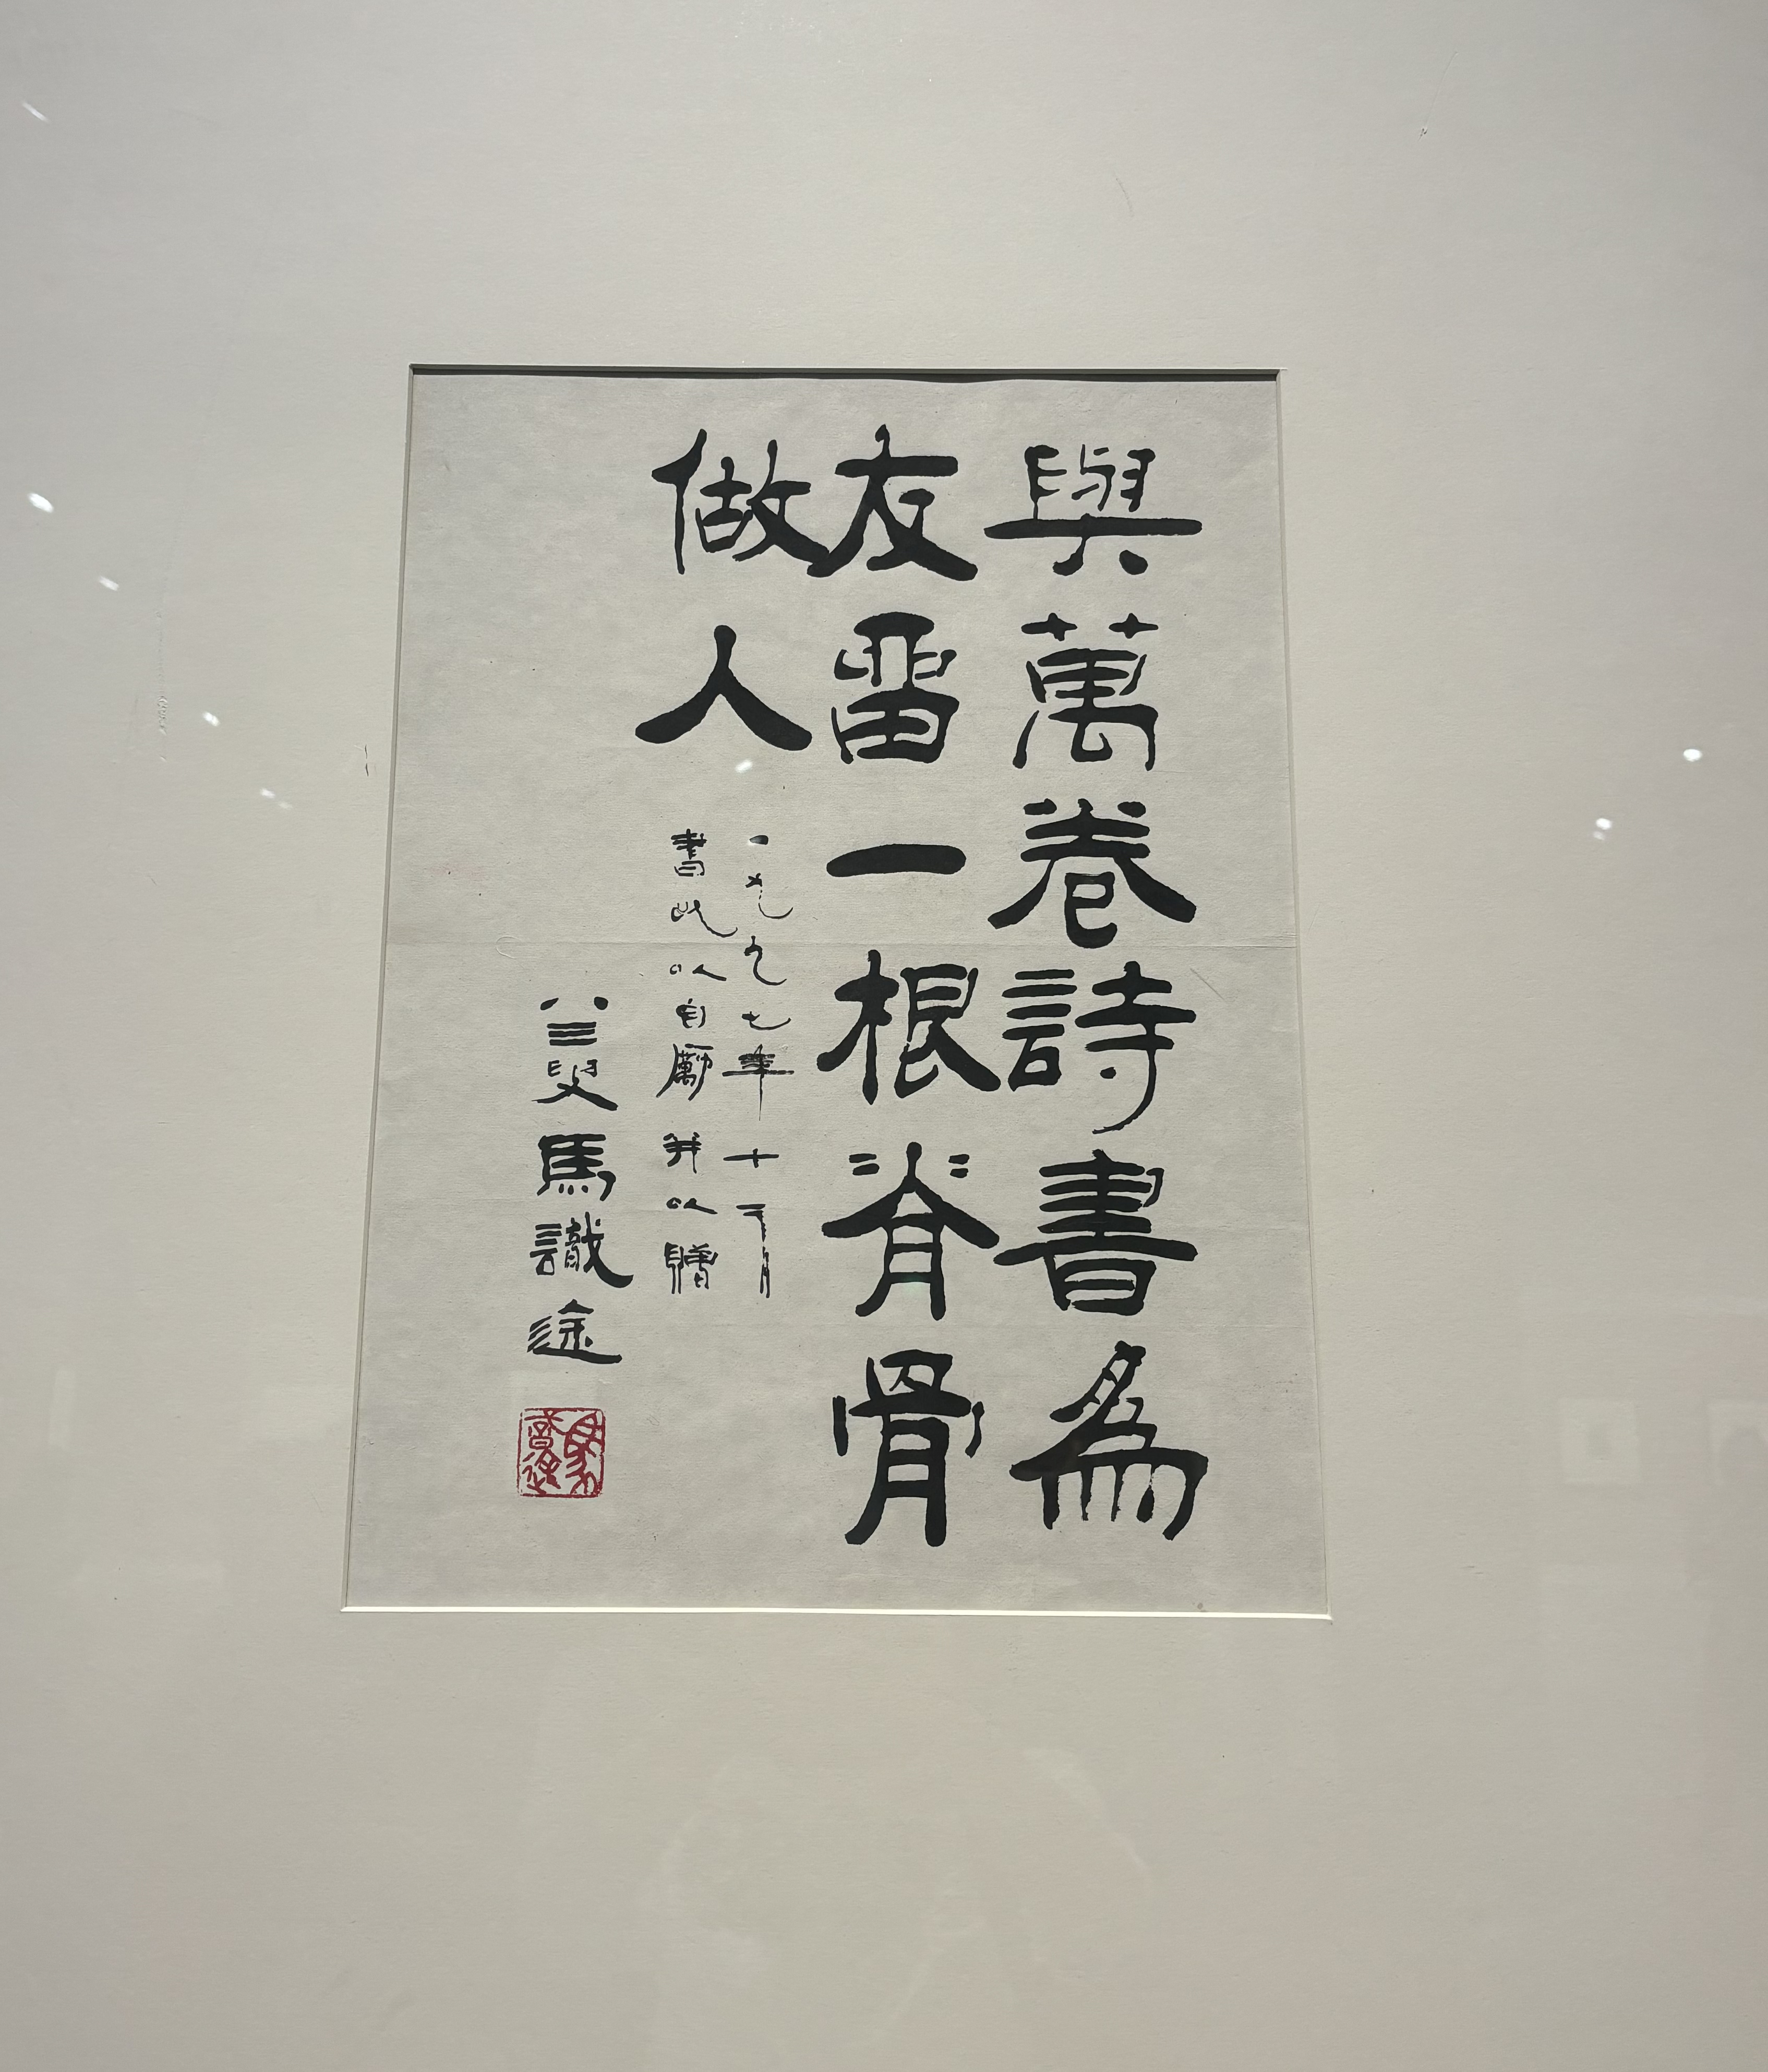 與萬卷詩書為
友留一根脊骨
做人
一九九七年十二月
書此以自勵并以贈
八三叟馬識途
馬識途